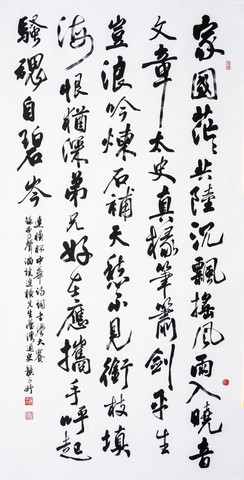 家國茫茫共陸沉飄搖風雨入曉音
文章太史真椽筆簫劍平生
豈浪吟煉石補天愁不見銜枝填
海恨猶深弟兄好在應攜手呼起
騷魂自碧岑
連橫杯中華詩詞大賽